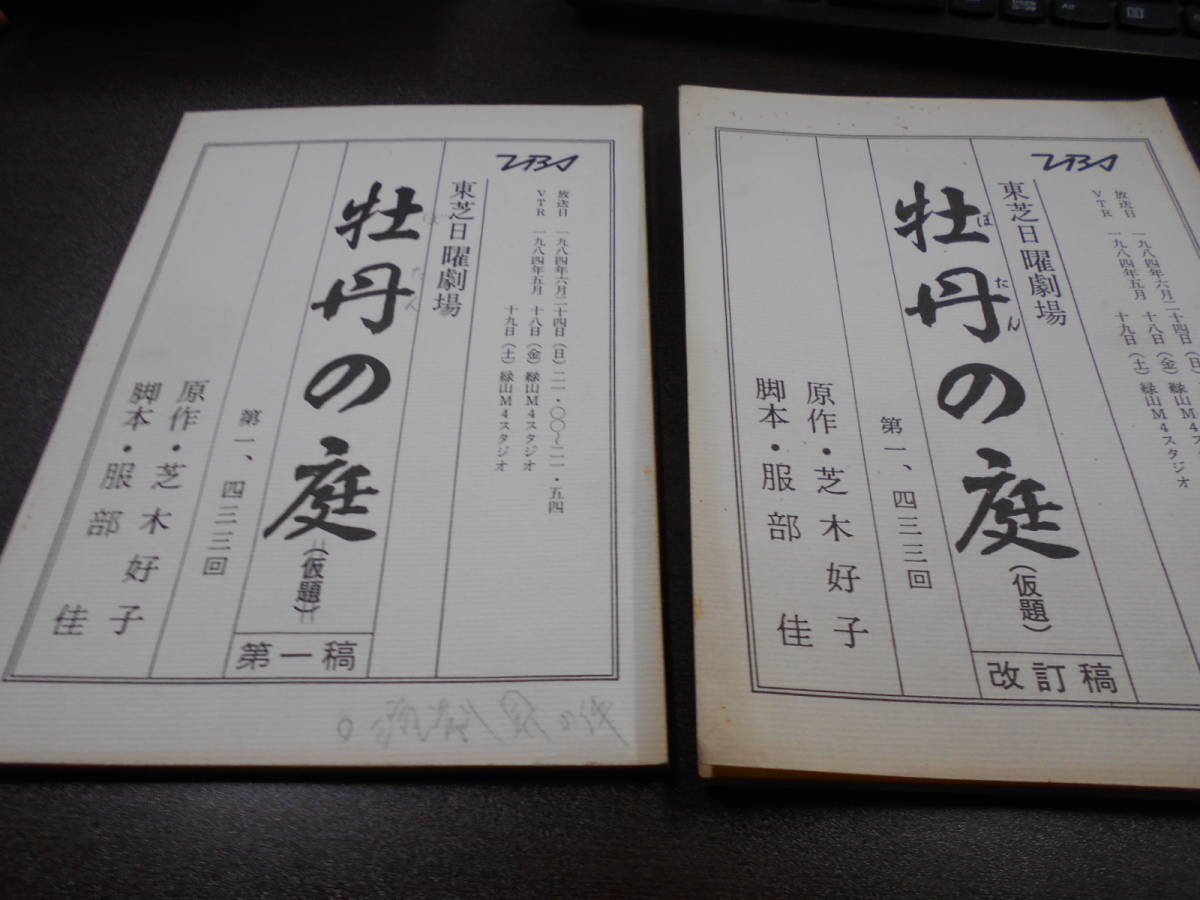 TBS
放送日 一九八四年六月二十四日(日)二一・〇〇~二一・五四
VTR 一九八四年五月 十八日(金)緑山M4スタジオ
十九日(土)緑山M4スタジオ
東芝日曜劇場
牡丹の庭(仮題)
ぼたん
第一稿
第一、四三三回
原作・芝木好子
脚本・服部佳
TBS
放送日 一九八四年六月二十四日(日
VTR 一九八四年五月 十八日(金)緑山M4ス
十九日(土)緑山M4スタジオ
東芝日曜劇場
牡丹の庭(仮題)
ぼたん
改訂稿
第一、四三三回
原作・芝木好子
脚本・服部佳